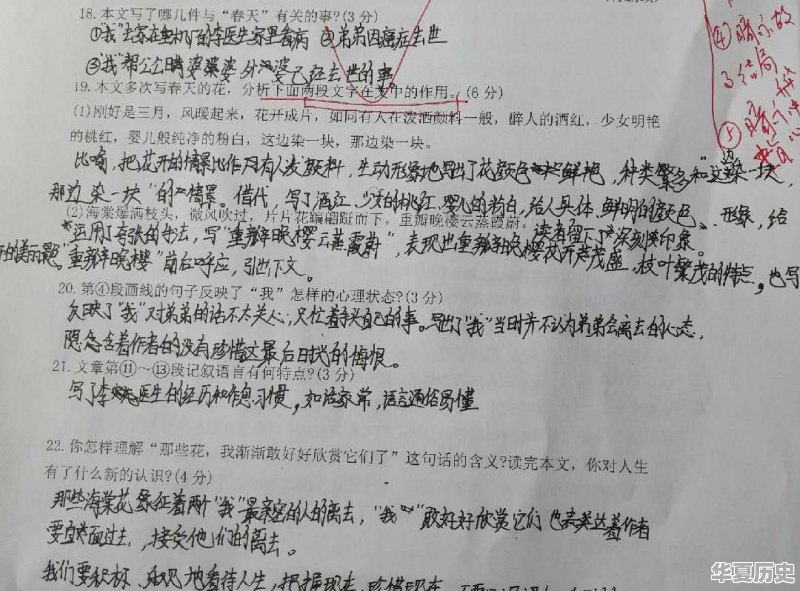 18.本文写了哪几件与“春天”有关的事?(3分)
①“我”去家在 的李医生家里看病 ②弟弟因癌症去世
③“我”帮公公 婆 婆 外婆已经去世的事
19.本文多次写春天的花，分析下面两段文字在文中的作用。(6分)
(1)刚好是三月，风暖起来，花开成片，如同有人在泼洒颜料一般，醉人的酒红，少女明艳
的桃红，婴儿般纯净的粉白，这边染一块，那边染一块。
比喻，把花开的情景比作 有人泼颜料，生动形象地写出了花颜色 鲜艳，种类繁多和“这边染一块，
那边染一块”的 情景。借代，写了酒红，少女的桃红，婴儿的粉白，给人具体、鲜明的颜色、形象，给
读者留下了深刻 印象。
(2)海棠爆满枝头，微风吹过，片片花瓣翩跹而下。重瓣晚樱云蒸霞蔚。
运用了夸张的手法，写“重瓣晚樱云蒸霞蔚”，表现出重瓣晚樱花开 茂盛，枝叶繁茂的特点，也写
的美丽。“重瓣晚樱”前后呼应，引出下文。
20.第④段画线的句子反映了“我”怎样的心理状态?(3分)
反映了“我”对弟弟的话不太关心，只忙着手头自己的事。写出了“我”当时并不认为弟弟会离去的心态，
隐含着作者 的没有珍惜这最后时光的悔恨。
21.文章第⑪～⑬段记叙语言有何特点?(3分)
写了李 医生的经历和作息习惯，如话家常，语言通俗易懂
22.你怎样理解“那些花，我渐渐敢好好欣赏它们了”这句话的含义?读完本文，你对人生
有了什么新的认识?(4分)
那些海棠花象征着两个“我”最亲密的人的离去，“我” 敢好好欣赏它们 也表达着作者
要直面过去，接受他们的离去。
我们要积极、乐观地看待人生，把握现在，珍惜现在
④暗示故
了结局
⑤
华夏历史